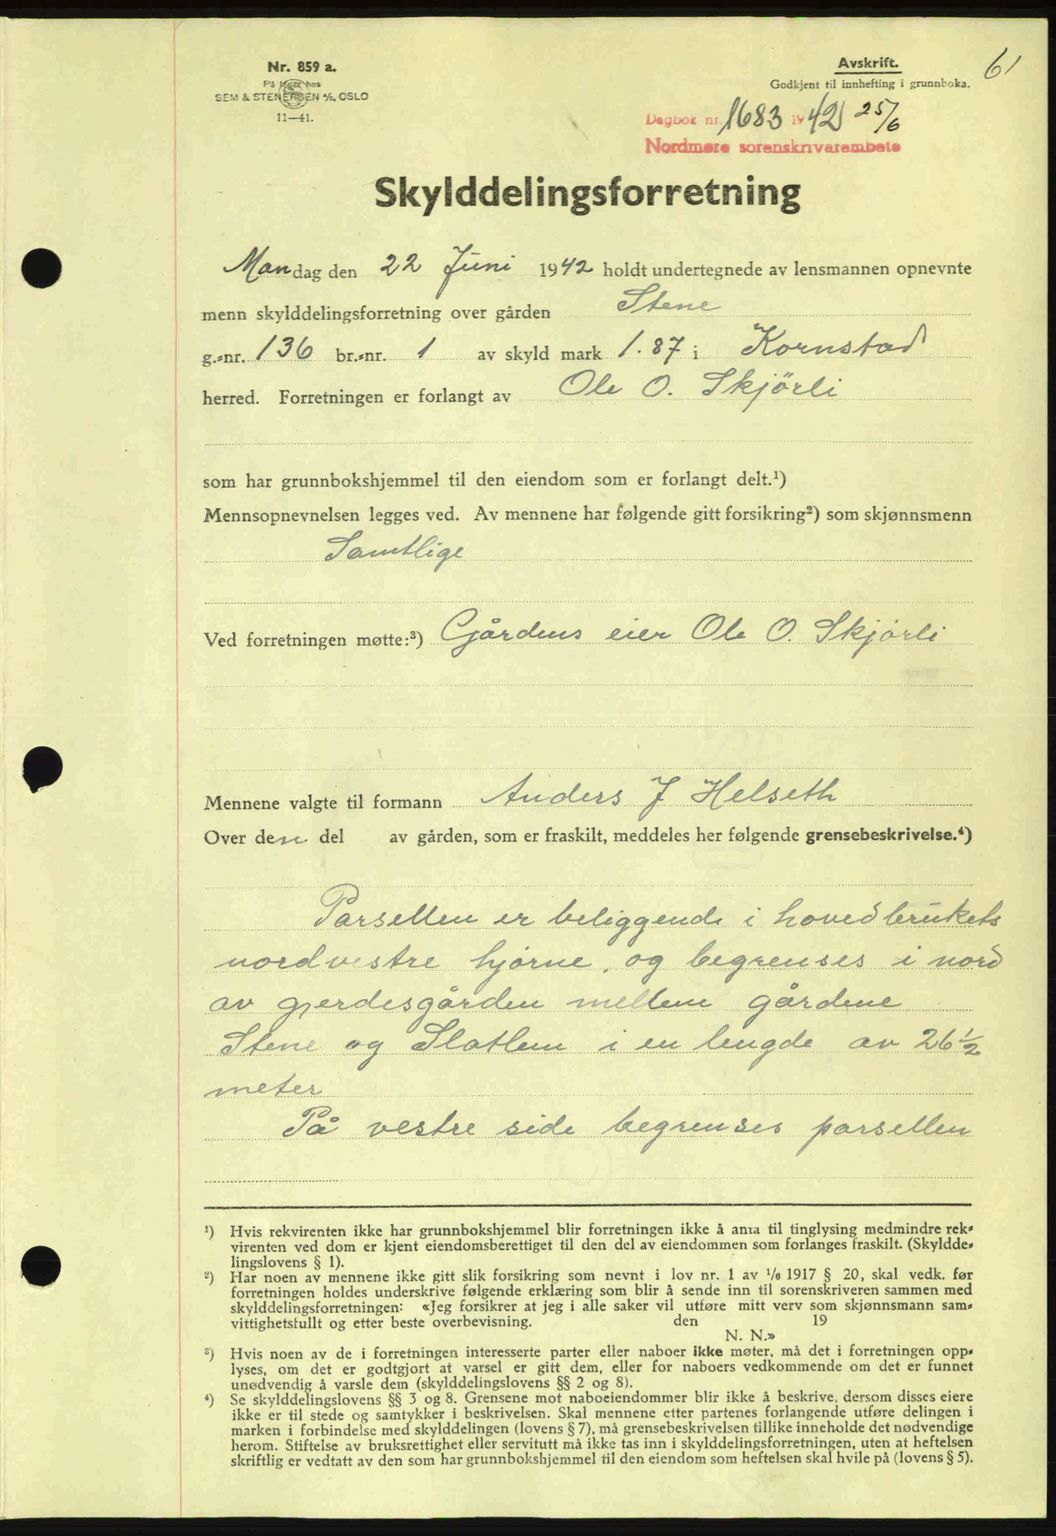 61
Nr. 859 a.
På lager hos
SEM & STENERSEN A/S, OSLO
11—41.
Avskrift.
Godkjent til innhefting i grunnboka.
Dagbok nr. 1683 19 42 25/6
Nordmøre sorenskriverembete
Skylddelingsforretning
Mandag den 22 Juni 1942 holdt undertegnede av lensmannen opnevnte
menn skylddelingsforretning over gården Stene
g.-nr. 136 br.-nr. 1 av skyld mark 1.87 i Kornstad
herred. Forretningen er forlangt av Ole O. Skjörli
som har grunnbokshjemmel til den eiendom som er forlangt delt.¹)
Mennsopnevnelsen legges ved. Av mennene har følgende gitt forsikring²) som skjønnsmenn
Samtlige
Ved forretningen møtte:³) Gårdens eier Ole O. Skjörli
Mennene valgte til formann Anders J Helseth
Over den del av gården, som er fraskilt, meddeles her følgende grensebeskrivelse.⁴)
Parsellen er beliggende i hovedbrukets
nordvestre hjörne, og begrenses i nord
av gjerdesgården mellem gårdene
Stene og Slatlem i en lengde av 26 ½
meter
På vestre side begrenses parsellen
¹) Hvis rekvirenten ikke har grunnbokshjemmel blir forretningen ikke å anta til tinglysing medmindre rek-
virenten ved dom er kjent eiendomsberettiget til den del av eiendommen som forlanges fraskilt. (Skyldde-
lingslovens § 1).
²) Har noen av mennene ikke gitt slik forsikring som nevnt i lov nr. 1 av 1/6 1917 § 20, skal vedk. før
forretningen holdes underskrive følgende erklæring som blir å sende inn til sorenskriveren sammen med
skylddelingsforretningen: «Jeg forsikrer at jeg i alle saker vil utføre mitt verv som skjønnsmann sam-
vittighetsfullt og etter beste overbevisning. den 19
N. N.»
³) Hvis noen av de i forretningen interesserte parter eller naboer ikke møter, må det i forretningen opp-
lyses, om det er godtgjort at varsel er gitt dem, eller for naboers vedkommende om det er funnet
unødvendig å varsle dem (skylddelingslovens §§ 2 og 8).
⁴) Se skylddelingslovens §§ 3 og 8. Grensene mot naboeiendommer blir ikke å beskrive, dersom disses eiere
ikke er til stede og samtykker i beskrivelsen. Skal mennene etter partenes forlangende utføre delingen i
marken i forbindelse med skylddelingen (lovens § 7), må grensebeskrivelsen tillike inneholde det nødvendige
herom. Stiftelse av bruksrettighet eller servitutt må ikke tas inn i skylddelingsforretningen, uten at heftelsen
skriftlig er vedtatt av den som har grunnbokshjemmel til den eiendom som heftelsen skal hvile på (lovens § 5).